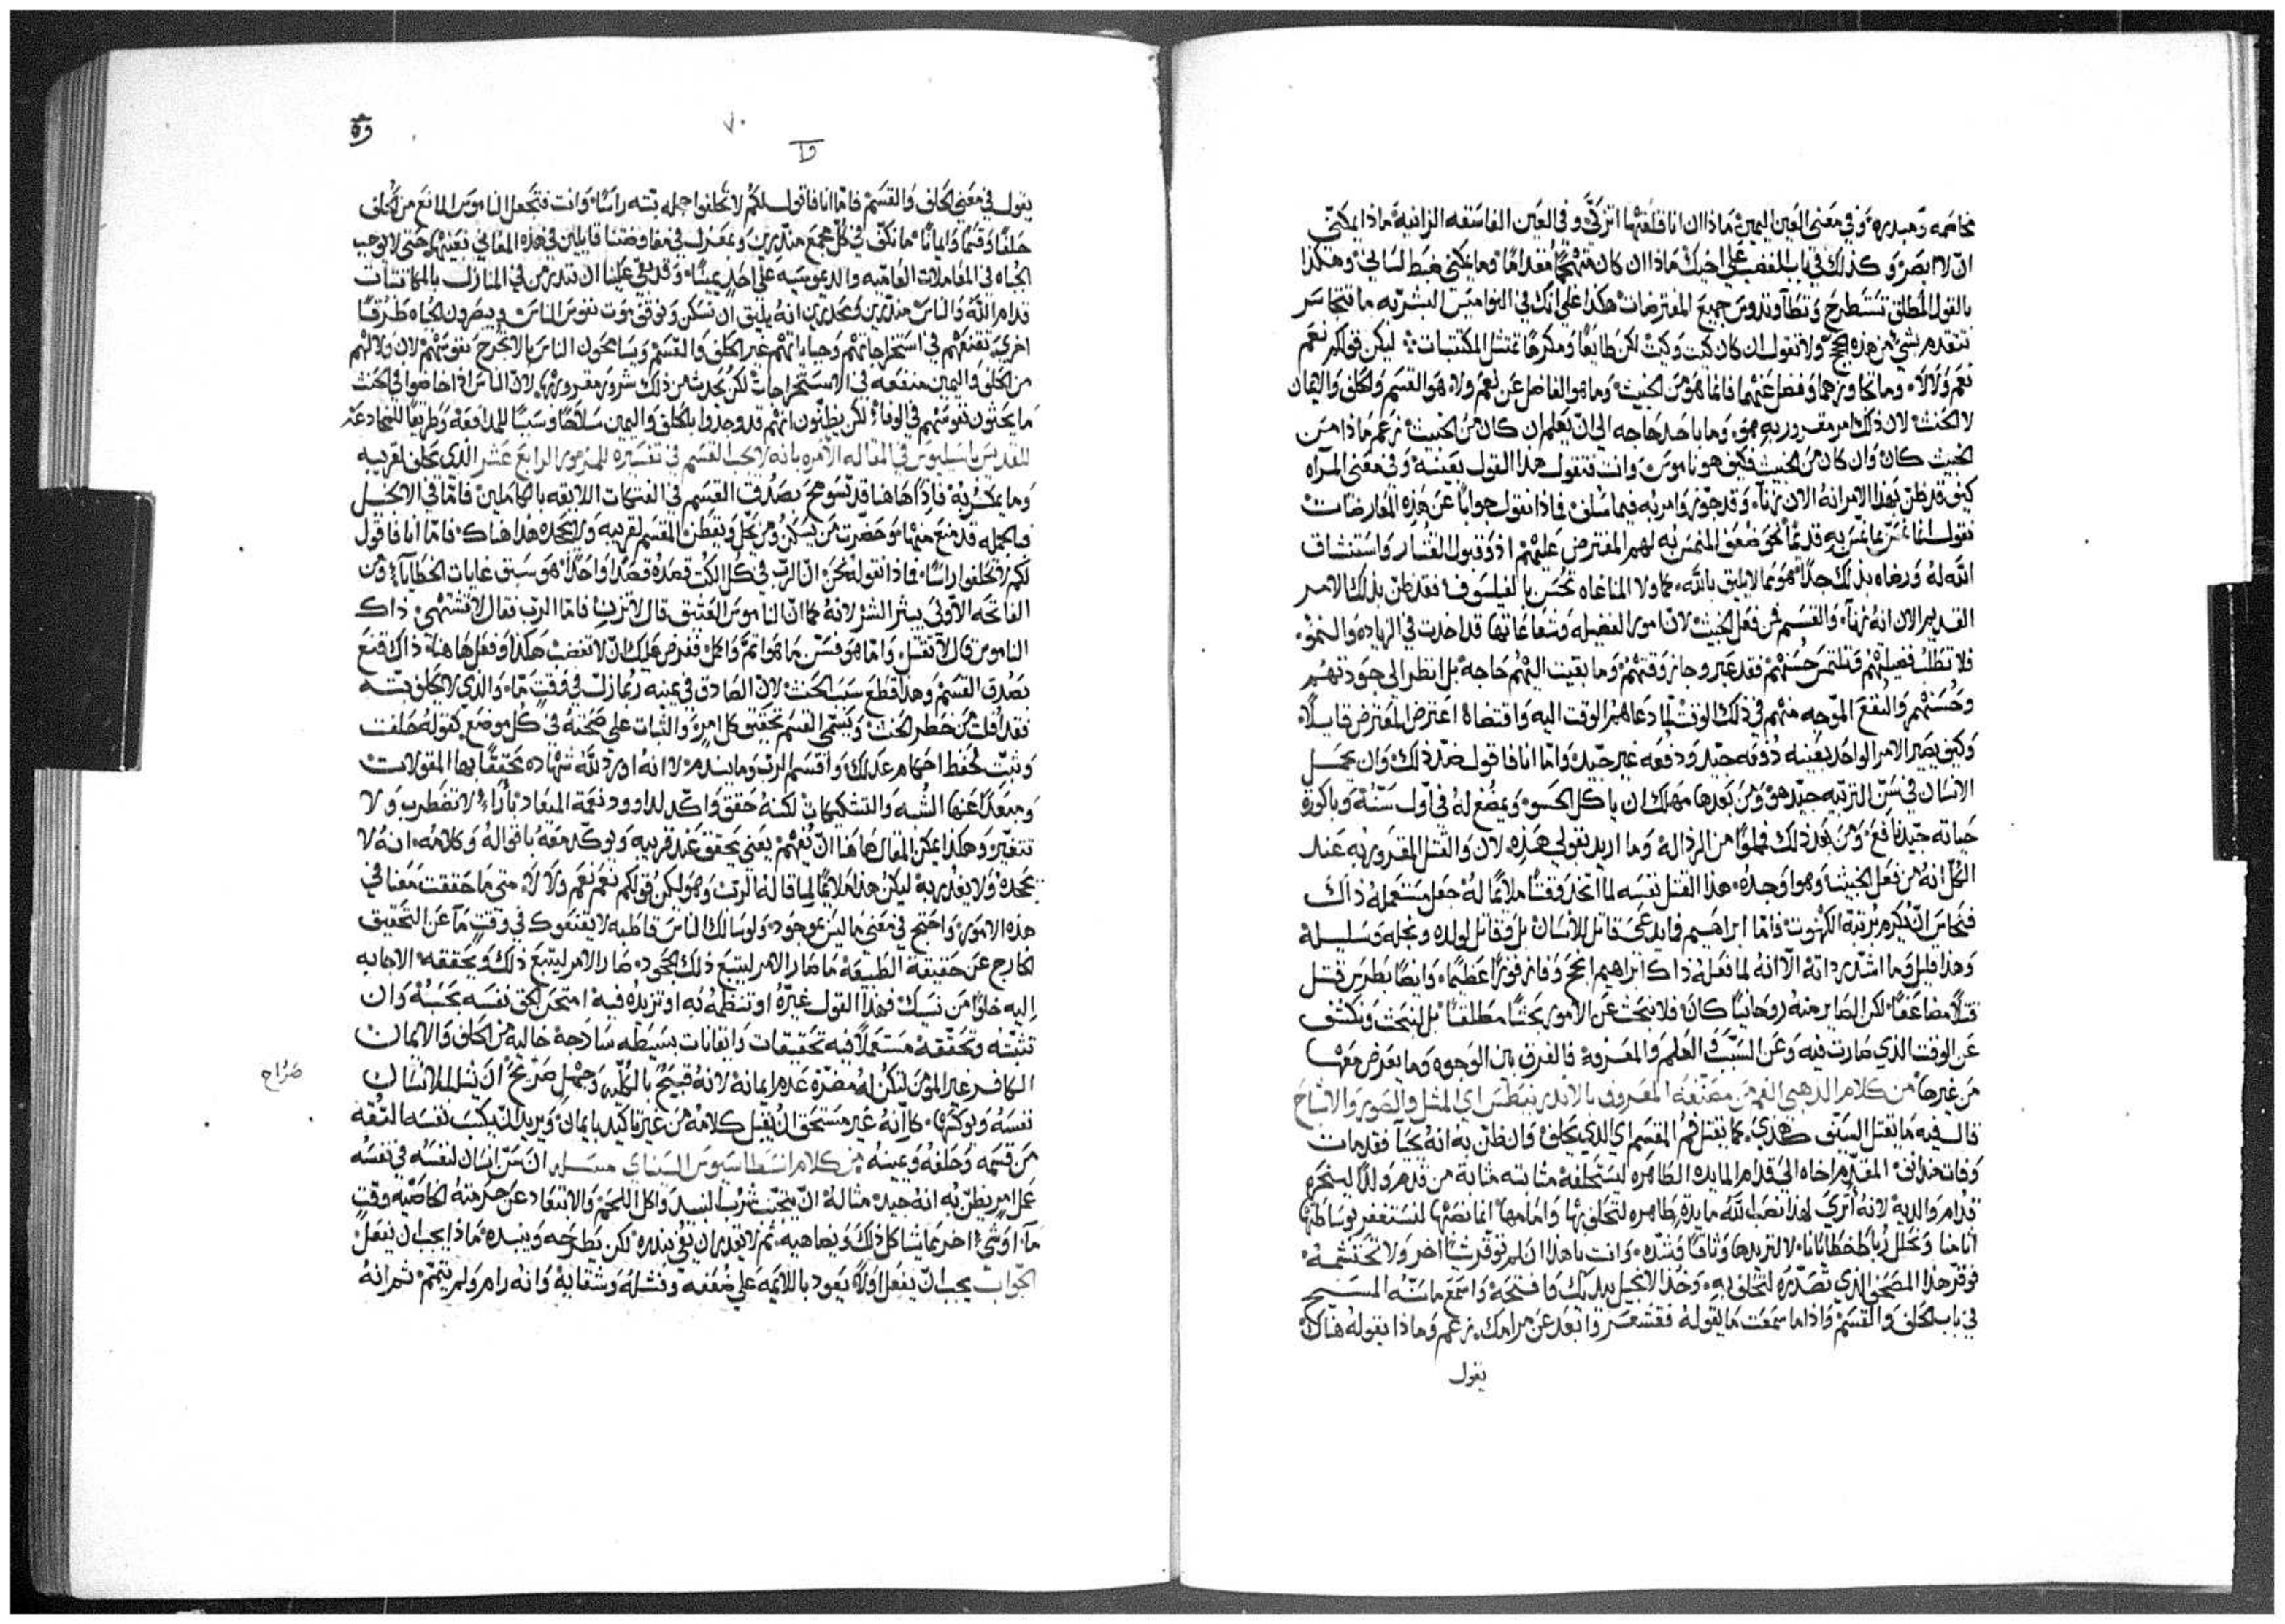 بخاصمه ومبدره وفي معنى العين اليمين ماذا ان انا قلعتها اتزكّى وفي العين الفاسقه الزانية ماذا يمكنّي
ان لا ابصر وكذلك في باب الغضب على اخيك ماذا ان كان وما يمكنّي ضبط لساني وهكذا
بالقول المطلق تستطرح وتطا وتدوس جميع المفترضات هكذا على انك في النواميس البشريه ما تتجاسر
تتقدم بشي من هذه الحجج ولا تقول ان كان كيت وكيت لكن طايعًا ومكرهًا تمتثل المكتتبات ليكن قولكم نعم
نعم ولا لا وما تجاوزهما وفضل عنهما فانما هو من الخبيث وما هو الفاضل عن نعم ولا هو القسم والحلف والايمان
لا الحنث لان ذلك امر مقرور به وما باحد حاجه الى ان يعلم ان كان من الخبيث زعم ماذا من
الخبيث كان وان كان من الخبيث فكيف هو ناموس وانت فتقول هذا القول بعينه وفي معنى المرآه
كيف قد ظن بهذا الامر انه الان زناء وقد جوّز وامر به فيما سلف فماذا نقول جوابًا عن هذه المعارضات
نقول انما قديمًا نحو ضعف الملتمس به لهم المفترض عليهم اذ وقبول القتار واستنشاق
الله له ورضاه بذلك جدًا هو مما لا يليق بالله كما ولا المناغاه تحسن بالفيلسوف فقد ظن بذلك الامر
القديم الان انه زناء والقسم من فعل الخبيث لان امور الفضيله وشعاعاتها قد اخذت في الزياده والنمو
فلا تطلب فضيلتهم وتلتمس حسنهم فقد عبر وجاز وقتهم وما بقيت اليهم حاجه بل انظر الى جودتهم
وحسنهم والنفع الموجه منهم في ذلك الوقت لما دعاهم الوقت اليه واقتضاه اعترض المعترض قايلًا
وكيف يصير الامر الواحد بعينه دفعه جيد ودفعه غير جيد واما انا فاقول ضد ذلك وان يحمل
الانسان في سن التربيه جيد هو ومن بعدها مهلك ان ياكل الحسو ويمضغ له في اول سنّه وباكورة
حياته جيد نافع ومن بعد ذلك فمملوًا من الرذالة وما اريد نقول هذه لان والقتل المقرور به عند
الكل انه من فعل الخبيث وهو وحده هذا القتل نفسه لما اتخذ وقتًا ملايمًا له جعل مستعمله ذاك
فنحاس ان يكرم برتبة الكهنوت فاما ابراهيم فما يدعى قاتل للانسان بل وقاتل لولده ونجله وسليله
وهذا قليل وما اشد رداته الا انه لما فعله ذاك ابراهيم انجح وفاز فوزًا عظيمًا وايضًا بطرس قتل
قتلًا مضاعفًا لكن الصاير منه روحانيًا كان فلا نبحث عن الامور بحثًا مطلقًا بل لنبحث ونكشف
عن الوقت الذي صارت فيه وعن السبب والعلم والمعرفة فالفرق بين الوجوه وما يعرض معها
من غيرها من كلام الذهبي الفم من مصنفه المعروف بالاندريانتطس اي المثل والصور والاشباح
قال فيه ما يقتل السيف هكذي كما يقتل فم المقسم اي الذي يحلف وان ظن به انه نجا فقد مات
وفات هذا في المقدم اخاه الى قدام المايده الطاهره ليستحلفه مثابته مثابة من قدم ولدًا لينحره
قدام والديه لانه أترى لهذا نصب الله مايدة طاهره لتحلف بها وامامها انما نصبها لنستغفر بوساطتها
اثامنا ونحلل رباط خطايانا لا لنزيدها وثاقًا وشده وانت يا هذا ان لم توقر شيًا اخر ولا تحتشمه
فوقر هذا المصحف الذي تصدّره لتحلف به وخذ الانجيل بيديك وافتحه واسمع ما سنّه المسيح
في باب الحلف والقسم واذا ما سمعت ما يقوله فقشعر وابعد عن مرامك زعم وماذا يقوله هناك
يقول
٧٠
يقول في معنى الحلف والقسم فاما انا فاقول لكم لا تحلفوا جمله بتّه راسًا وانت فتجعل الناموس المانع من الحلف
حلفًا وقسمًا وايمانًا ما نكف في كل مجمع منذرين وبمعزل في مفاوضتنا قايلين في هذه المعاني بعينها حتى لا نوجب
الجباه في المعاملات العاميه والدعوسيه على احد يمينًا وقد بقي علينا ان نتدرس في المنازل بالمكاتبات
قدام الله والناس منذرين ومحذرين انه يليق ان نسكن ونوقى موت نفوس الناس ويبصرون الجباه طرقًا
اخرى تقنعهم في استخراجاتهم وجباياتهم غير الحلف والقسم ويسامحون الناس بالا تجرح نفوسهم لان ولا لهم
من الحلف واليمين منفعه في الاستخراجات لكن يحدث من ذلك شرور مقرور بها لان الناس اذا خاضوا في الحنث
ما يحثون نفوسهم في الوفاء لكن يظنون انهم قد وجدوا بالحلف واليمين سلاحًا وسببًا للمدافعه وطريقًا للمخادعه
للقديس باسيليوس في المقاله الآمره بانه لا يجب القسم في تفسيره للمزمور الرابع عشر الذي يحلف لقريبه
وما يمكر به فاذًا هاهنا قد تسومح بصدق القسم في الفتكات اللايقه بالكاملين فاما في الانجيل
فبالجمله قد منع منها ومن حضرت من يسكن ومن يحل ويقطن المقسم لقريبه ولا يجحده هذا هناك فاما انا فاقول
لكم لا تحلفوا راسًا فماذا نقوله نحن ان الرب في كل الكتب قصده قصدًا واحدًا هو سبق غايات الخطايا ومن
الفاتحه الاولى يبتر الشر لانه كما ان الناموس العتيق قال لا تزن فاما الرب فقال لا تشتهي ذاك
الناموس قال لا تقتل واما هو فسن ما هو اتم واكمل ففرض عليك ان لا تغضب هكذا وفعل هاهنا ذاك قنع
بصدق القسم وهذا قطع سبب الحنث لان الصادق في يمينه ربما زل في وقتٍ ما والذي لا يحلف بتّه
فقد افلت من خطر الحنث ويسمى القسم تحقيق كل امر والثبات على صحته في كل موضع كقوله حلفت
وثبتّ لحفظ احكام عدلك واقسم الرب وما يندم لا انه اورد لله شهاده محققًا بها المقولات
ومبعدًا عنها الشبه والتشكيكات لكنه حقق واكّد لداوود نعمة الميعاد بآراء لا تضطرب ولا
تتغير وهكذا يمكن المقال هاهنا ان يُفهم يعني يحقق عند قريبه ويوكّد معه باقواله وكلامه انه لا
يجحده ولا يغدر به ليكن هذا ملايمًا لما قاله الرب وهو ليكن قولكم نعم نعم ولا لا متى ما حققت معنا في
هذه الامور واحتج في معنى ما ليس بموجود ولو سالك الناس قاطبه لا يقنعوك في وقتٍ ما عن التحقيق
الخارج عن حقيقة الطبيعة ما صار الامر ليتبع ذلك الجحود صار الامر ليتبع ذلك ويحققه الاجابه
اليه خلوًا من نسيك فهذا القول غيره او تنظمه به او تزيده فيه امتحن لحق نفسه بحسبه وان
تثبته وتحققه مستعملًا فيه تحقيقات وايقانات بسيطه ساذجة خاليه من الحلف والايمان
الكافر غير المؤمن لتكن له مضرة عدم ايمانه لانه قبيح بالكليه وجهل صريح أن يثلب الانسان
صراح
نفسه ويوكسها كانه غير مستحق ان يقبل كلامه من غير تاكيد بايمان ويريد ان يكسب نفسه الثقه
من قسمه وحلفه ويمينه من كلام انسطاسيوس السيناي مسله ان سن انسان لنفسه في نفسه
عمل امر يظن به انه جيد مثاله ان يتجنب شرب النبيذ واكل اللحم والابتعاد عن حرمته الخاصيه وقتٍ
ما او شيء اخر مما يشاكل ذلك ويضاهيه ثم لا يقدر ان يفي بنذره لكن يطرحه وينبذه ماذا يجب ان يفعل
الجواب يجب ان يفعل اولًا يعود باللايمه على ضعفه وفشله وشقايه وانه رام ولم يتمم ثم انه